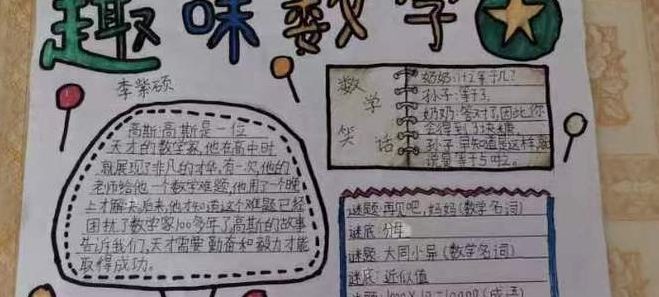 趣味数学
李紫硕
高斯:高斯是一位
天才的数学家,他在高中时
就展现了非凡的才华,有一次,他的
老师给他一个数学难题,他用了一个晚
上才解决,后来,他才知道这个难题已经
困扰了数学家100多年了,高斯的故事
告诉我们,天才需要勤奋和毅力才能
取得成功。
数学笑话
奶奶:1+2等于几?
孙子:等于3。
奶奶:答对了,因此你
会得到了3块糖。
孙子:早知道是这样,我
说是等于5呵2。
谜题:再见吧,妈妈(数学名词)
谜底:分母
谜题:大同小异(数学名词)
谜底:近似值
谜题:1000×10=10000(成语)